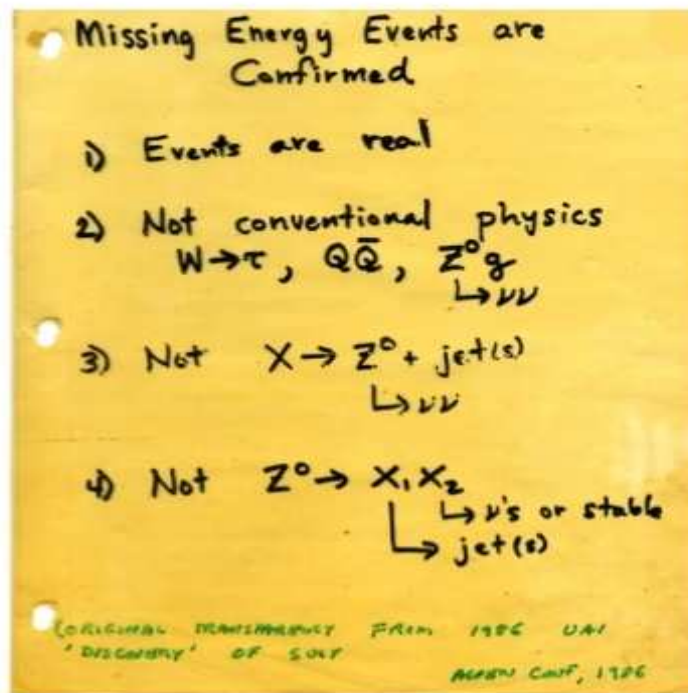 Missing Energy Events are
Confirmed
1) Events are real
2) Not conventional physics
W→τ, QQ̄, Z⁰g
↳νν
3) Not X→Z⁰+ jet(s)
↳νν
4) Not Z⁰→ X₁X₂
↳ν's or stable
↳jet(s)
(ORIGINAL TRANSPARENCY FROM 1986 UA1
"DISCOVERY" OF SUSY
ASPEN CONF, 1986